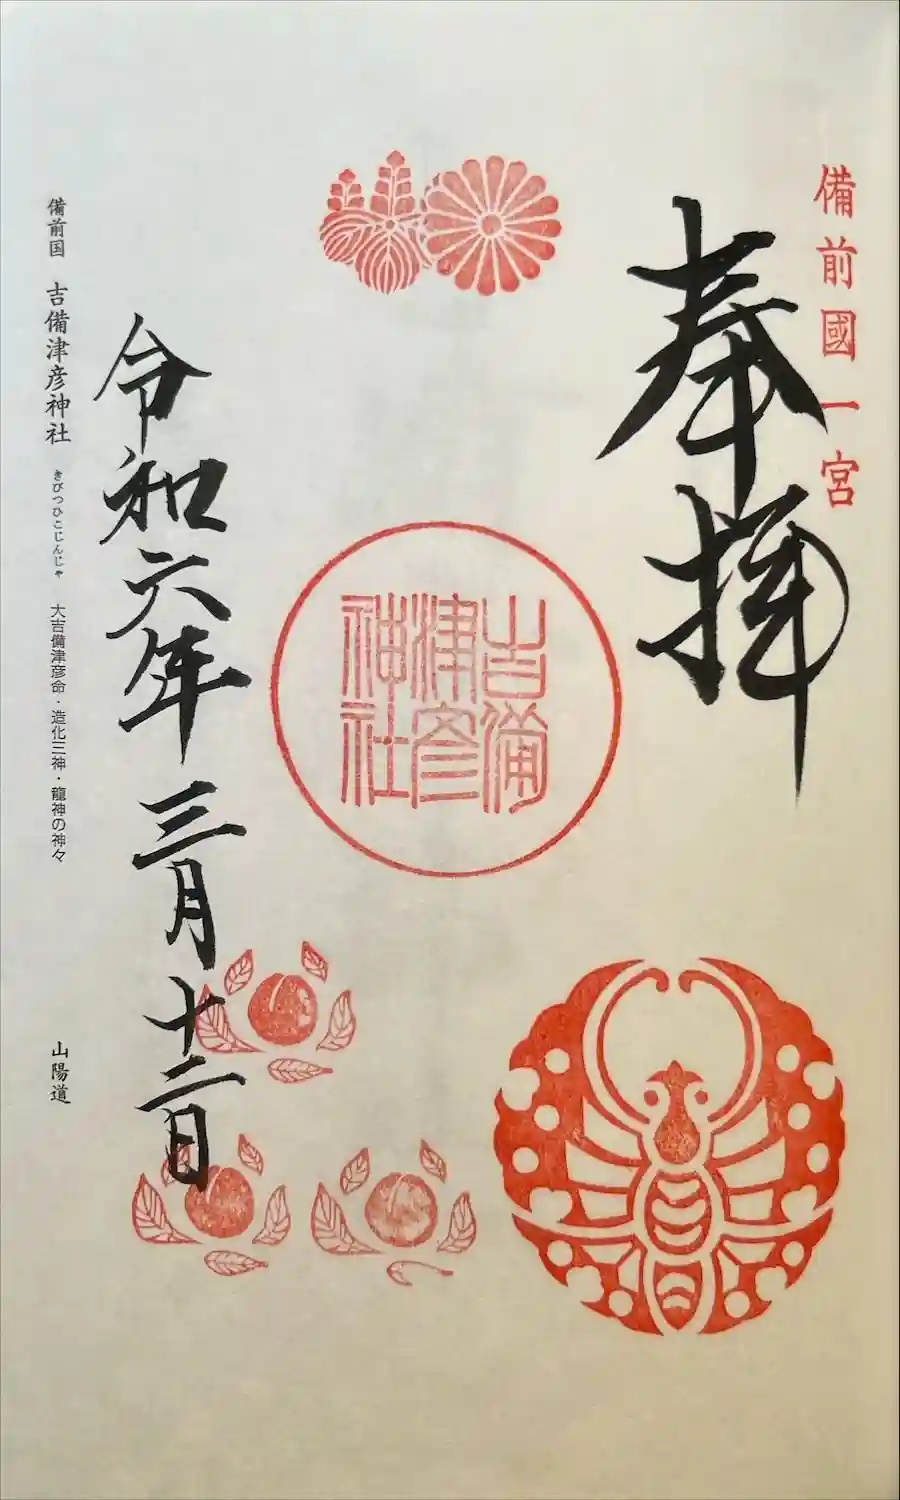 備前國一宮
奉拝
吉備
津彦
神社
令和六年三月十二日
備前国 吉備津彦神社 きびつひこじんじゃ 大吉備津彦命・造化三神・龍神の神々 山陽道